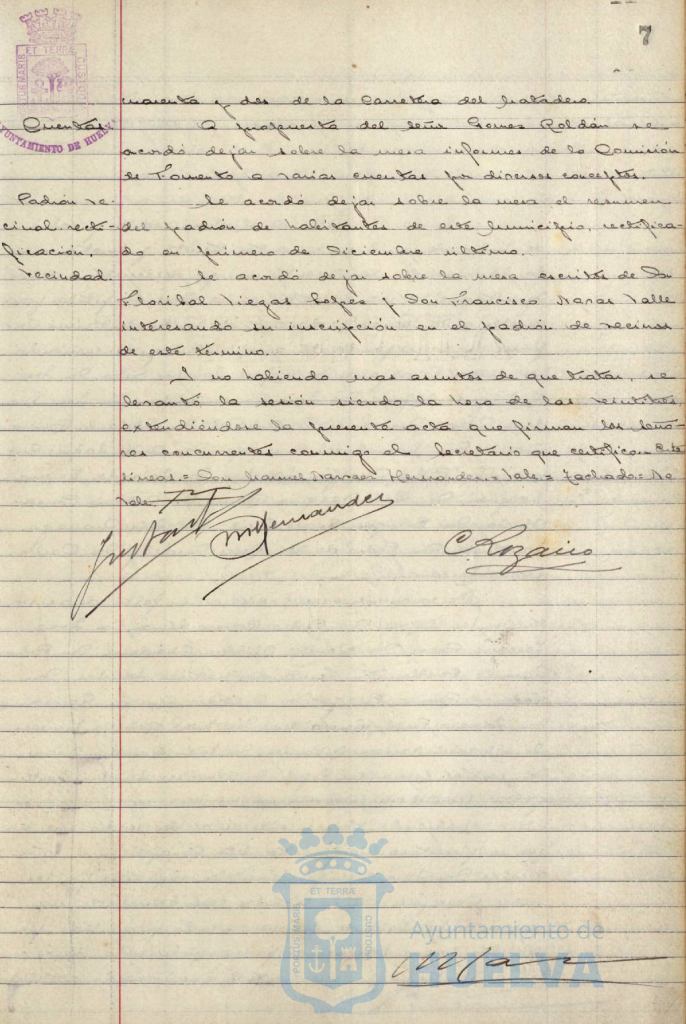 7
PORTUS MARIS ET TERRÆ CUSTODIA
AYUNTAMIENTO DE HUELVA
cuarenta y dos de la Carretera del Matadero.
Cuentas. A propuesta del señor Gomez Roldán se
acordó dejar sobre la mesa informes de la Comisión
de Fomento a varias cuentas por diversos conceptos.
Padrón ve- Se acordó dejar sobre la mesa el resumen
cinal. recti- del padrón de habitantes de este Municipio, rectifica-
ficación. do en primero de Diciembre último.
Vecindad. Se acordó dejar sobre la mesa escritos de Don
Floribal Viegas Lopes y Don Francisco Navas Valle
interesando su inscripción en el padrón de vecinos
de este término.
Y no habiendo mas asuntos de que tratar, se
levantó la sesión siendo la hora de las
extendiéndose la presente acta que firman los seño-
res concurrentes conmigo el Secretario que certifico.=
lineas.= Don Manuel Hernandez.= Vale.= Tachado.= No
Vale.
MHernandez
C Rozairo
PORTUS MARIS ET TERRÆ CUSTODIA
Ayuntamiento de
HUELVA